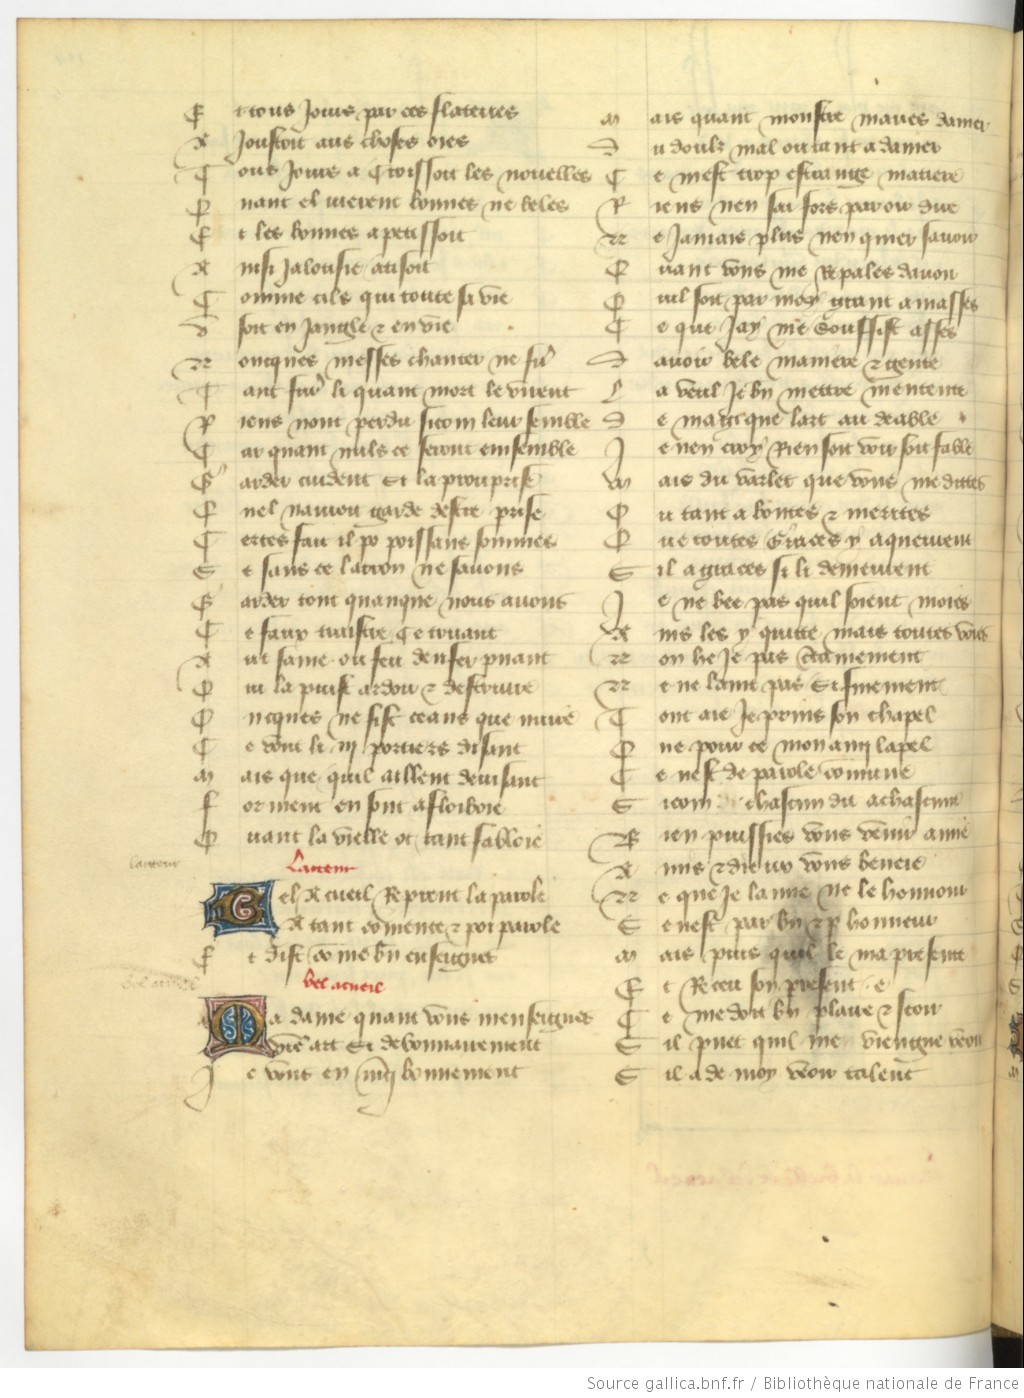 E t tous jours par ces flateries
A joustoit aus choses oies
T ous jours a croissoit les nouvelles
P nant el nierent bonnes ne beles
E t les bonnes apetissoit
A insi jalousie atisoit
C omme cils qui toute sa vie
V soit en jangle et envie
N oncques messes chanter ne fu
T ant fur li quant mort le virent
R iens nont perdu sicom leur semble
C ar quant nuls ce seront ensemble
G arder cuident si la pourprise
E nel nauroit garde destre prise
C ertes fait il po poissans sommes
S e sans ce larron ne savons
G arder tout quanque nous avons
C e faux traistre ce truant
A ut lame ou feu denfer puant
Q ui la puist ardoir et destruire
O ncques ne fist ceans que nuire
C e vont li iij portiers disant
M ais que quil aillent devisant
F orment en sont afloiboie
Q uant la vielle ot tant fabloie
Lauteur
Lauteur
B el Acueil Reprent la parole
A tant comence et poi parole
E t dist comme bien enseignes
bel acueil
bel acueil
M a dame quant vous menseignes
Vostre art si debonnairement
J e vous en mercy bonnement
M ais quant monstre maves damer
D u doulz mal ou tant a damer
C e mest trop estrange matiere
R iens nen sai fors par oir dire
N e jamais plus nen quier savoir
Q uant vous me Repales davoir
Q uil soit par moy grant amasses
C e que jay me souffist asses
D avoir bele maniere et gente
L a vueil je bien mettre mentente
D e magique lart au deable
J e nen croy Rien soit voir soit fable
M ais du varlet que vous me dittes
O u tant a bontes et merites
Q ue toutes Graces y aqueurent
S il a graces si li demeurent
J e ne bee pas quil soient moies
A ins les y quitte mais toutes voies
N on he je pas certainement
N e ne laim pas si finement
T ont aie je prins son chapel
Q ue pour ce mon ami lapel
C e nest de parole commune
S icom chascun dit a chascune
B ien puissies vous venir amie
A mis et dieux vous beneie
N e que je laime ne le honnour
S e nest par bien et par honneur
M ais puis quil le ma presente
E t Receu son present e
C e me doit bien plaire et seoir
S il puet quil me viengne veoir
S il a de moy veoir talent
Source gallica.bnf.fr / Bibliothèque nationale de France